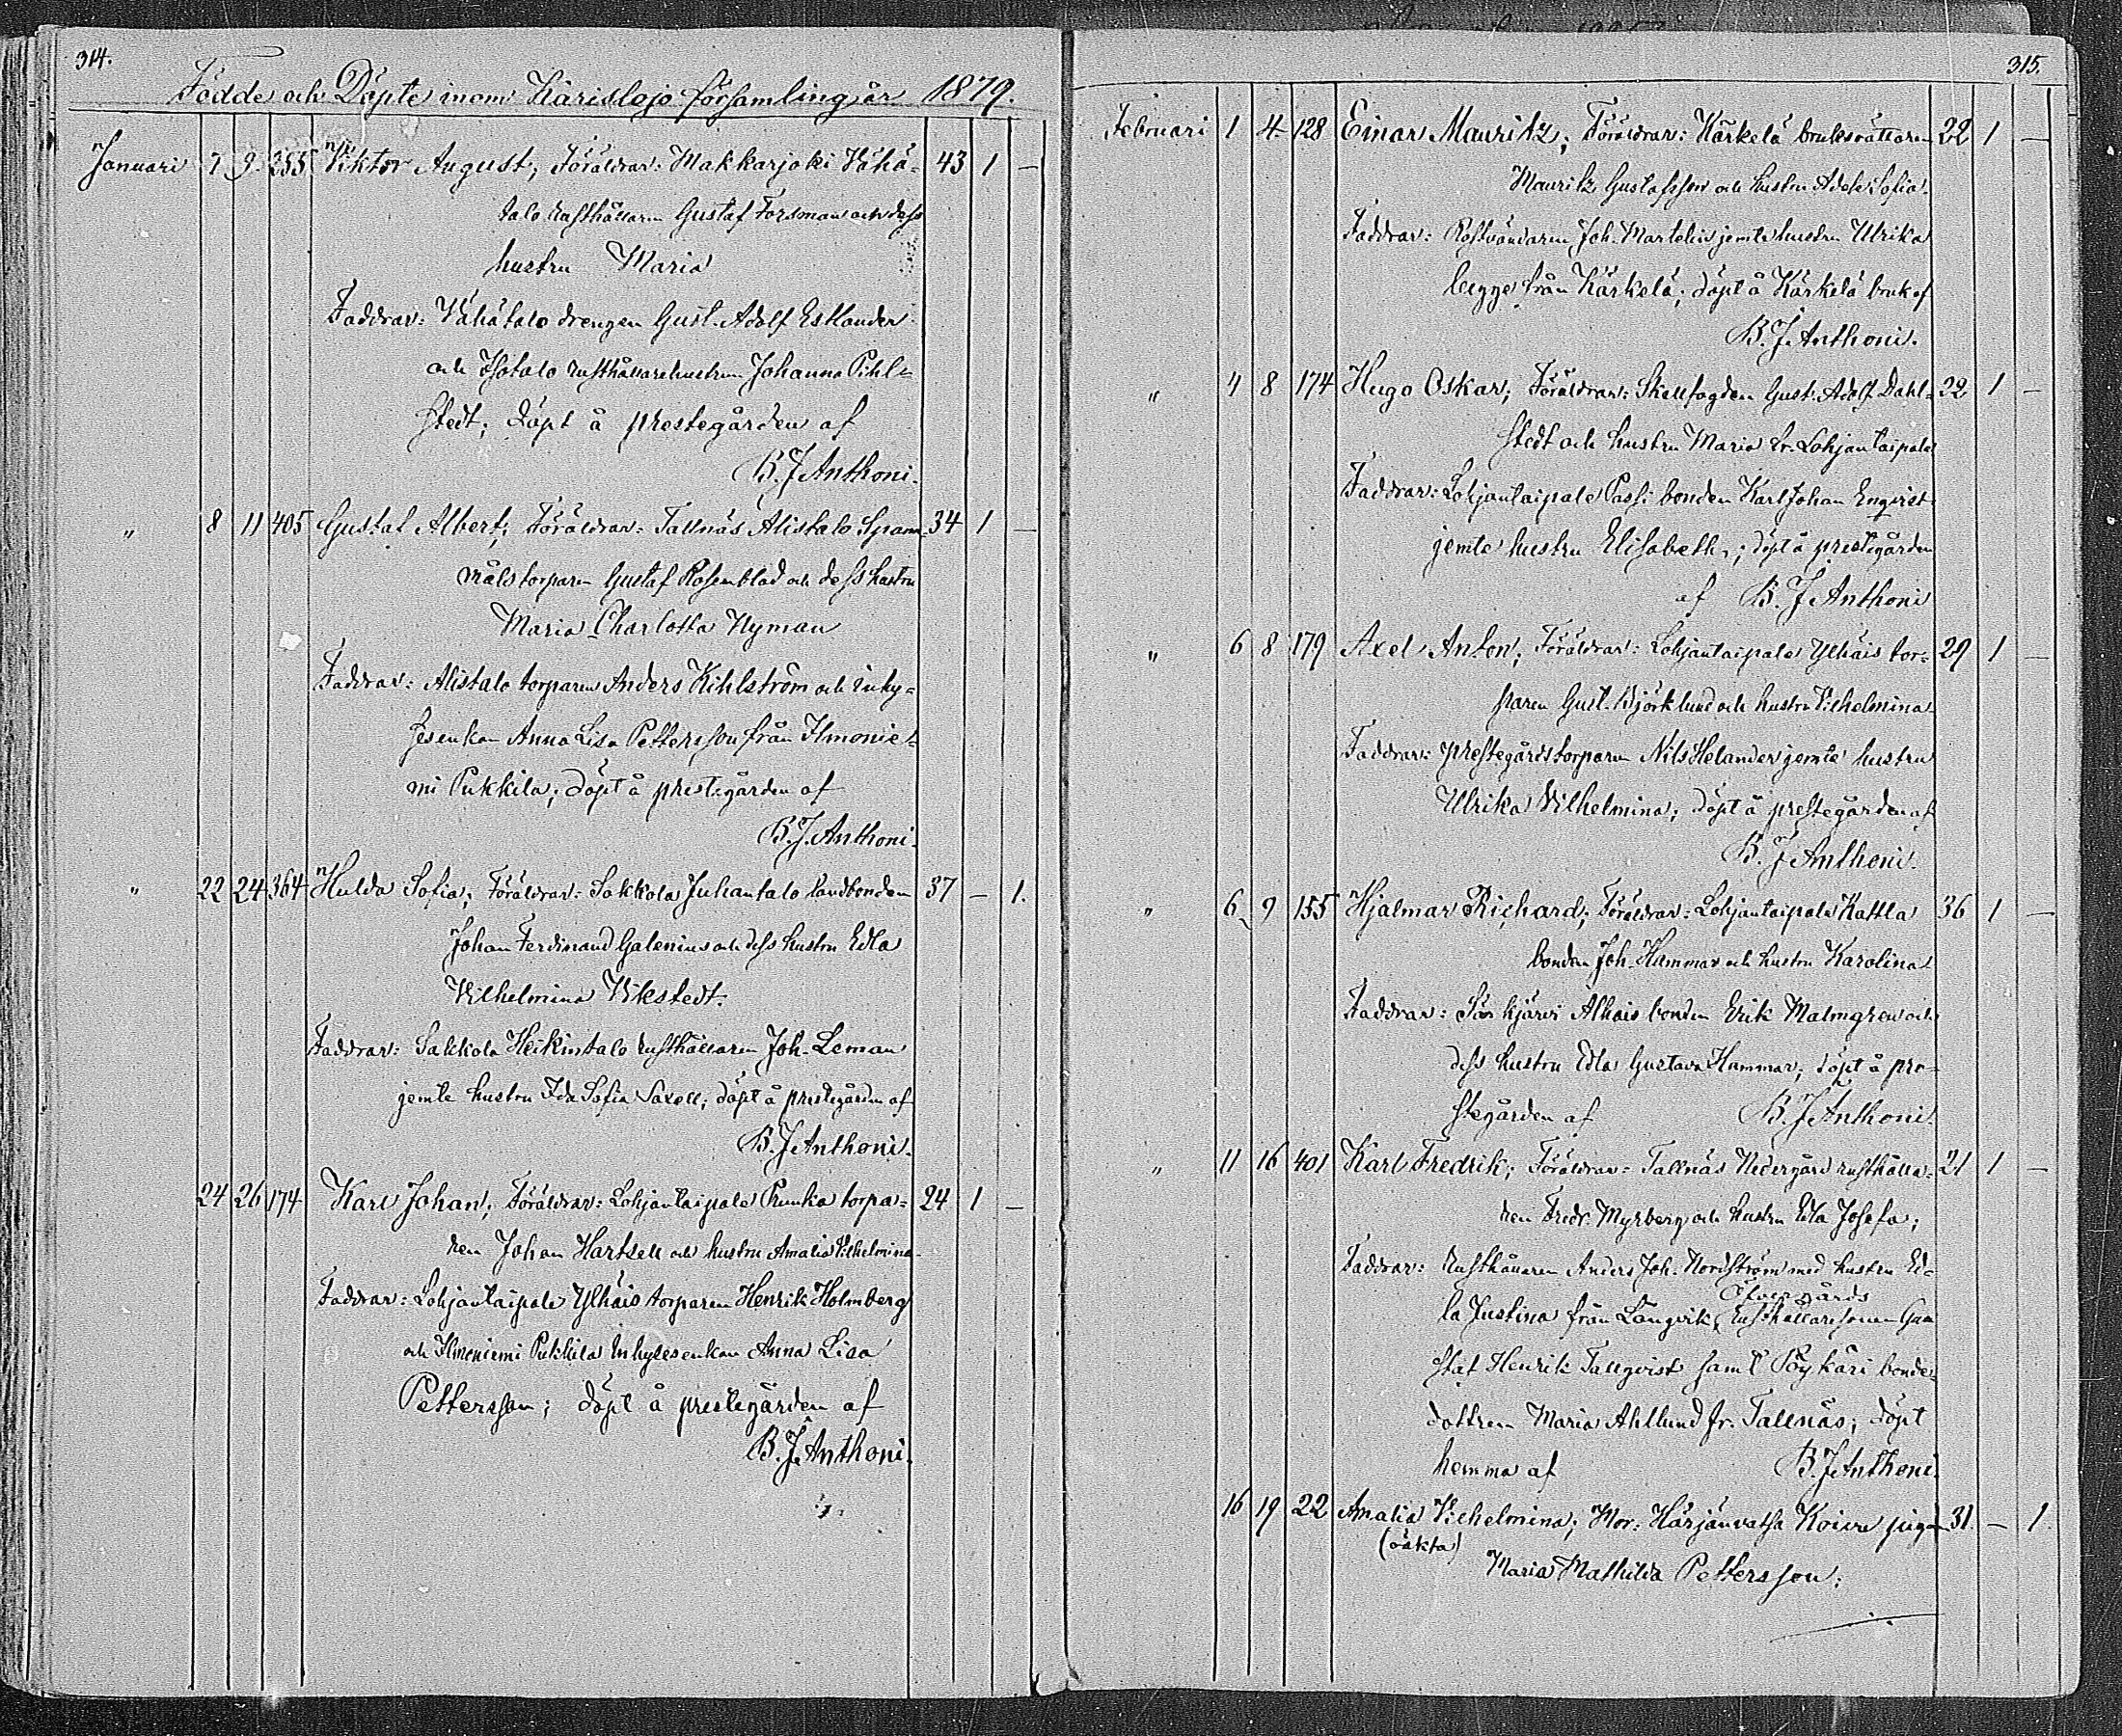 314.
Födde och Döpte inom Karislojo församling år 1879.
Januari 7 9. 355 Viktor August; Föräldrar: Makkarjoki Vähä- 43 1 —
talo rusthållaren Gustaf Forsman och dess
hustru Maria
Faddrar: Vähätalo drengen Gust. Adolf Estlander
och Isotalo rusthållarehustrun Johanna Pihl-
stedt; Döpt å prestegården af
B. J. Anthoni.
" 8 11 405 Gustaf Albert; Föräldrar: Tallnäs Alistalo Spann- 34 1 —
målstorparen Gustaf Rosenblad och dess hustru
Maria Charlotta Nyman
Faddrar: Alistalo torparen Anders Kihlström och inhy-
sesenkan Anna Lisa Pettersson från Ilmonie-
mi Pukkila; döpt å prestegården af
B. J. Anthoni.
" 22 24 364 Hulda Sofia; Föräldrar: Sakkola Juhantalo landbonden 37 — 1.
Johan Ferdinand Galenius och dess hustru Edla
Vilhelmina Vikstedt.
Faddrar: Sakkola Heikintalo rusthållaren Joh. Leman
jemte hustru Ida Sofia Saxell; döpt å prestegården af
B. J. Anthoni.
24 26 174 Karl Johan; Föräldrar: Lohjantaipale Prunka torpa- 24 1 —
ren Johan Hartzell och hustru Amalia Vilhelmina
Faddrar: Lohjantaipale Ylhäis torparen Henrik Holmberg
och Ilmoniemi Pukkila Inhysesenkan Anna Lisa
Pettersson; döpt å prestegården af
B. J. Anthoni.
315.
Februari 1 4 128 Einar Mauritz; Föräldrar: Kärkelä bruksrättaren 22 1 —
Mauritz Gustafsson och hustru Adele Sofia.
Faddrar: Rostvändaren Joh. Martelin jemte hustru Ulrika
begge från Kärkelä; döpt å Kärkelä bruk af
B. J. Anthoni.
" 4 8 174 Hugo Oskar; Föräldrar: Skallfogden Gust. Adolf Dahl- 32 1 —
stedt och hustru Maria fr. Lohjantaipale
Faddrar: Lohjantaipale Passi bonden Karl Johan Engvist
jemte hustru Elisabeth; döpt å prestegården
af B. J. Anthoni
" 6 8 179 Axel Anton; Föräldrar: Lohjantaipale Ylhäis tor- 29 1 —
paren Gust. Björklund och hustru Vilhelmina
Faddrar: prestegårdstorparen Nils Helander jemte hustru
Ulrika Vilhelmina; döpt å prestegården af
B. J. Anthoni.
" 6 9 155 Hjalmar Richard; Föräldrar: Lohjantaipale Kattla 36 1 —
bonden Joh. Hammar och hustru Karolina
Faddrar: Särkjärvi Alhais bonden Erik Malmgren och
dess hustru Edla Gustava Hammar; döpt å pre-
stegården af B. J. Anthoni.
" 11 16 401 Karl Fredrik; Föräldrar: Tallnäs Nedergård rusthålla- 21 1 —
ren Fredr. Myrberg och hustru Edla Josefa;
Faddrar: Rusthållaren Anders Joh. Nordström med hustru Ed-
Öfvergårds
la Justina från Långvik, Rusthållaresonen Gu-
staf Henrik Tallqvist samt Pöykäri bonde-
dottren Maria Ahllund fr. Tallnäs; döpt
hemma af B. J. Anthoni.
16 19 22 Amalia Vilhelmina; Mor: Härjänvatsa Koivu pigan 31. — 1.
(oäkta)
Maria Mathilda Pettersson;